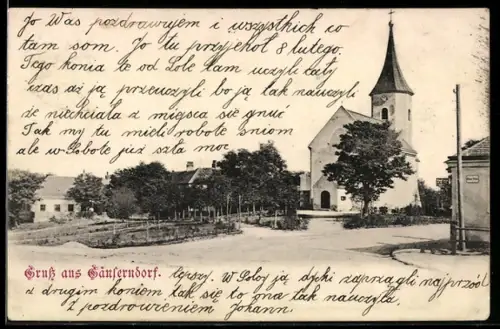 Jo Was pozdrawujem i wszystkich co
tam som. Jo tu przyjehoł 8 lutego.
Tego konia te od Sole tam uczyli cały
czas aż ją przeuczyli bo ją tak nauczyli
że niechciała z miejsca się gnuć
Tak my tu mieli robote sniom
ale w Sobote już szła moc
Gruß aus Gänserndorf.
lepszy. W Soboy ją dycki zaprzągli najprzód
z drugim koniem tak się to ona tak nauczyła.
Z pozdrowieniem Johann.